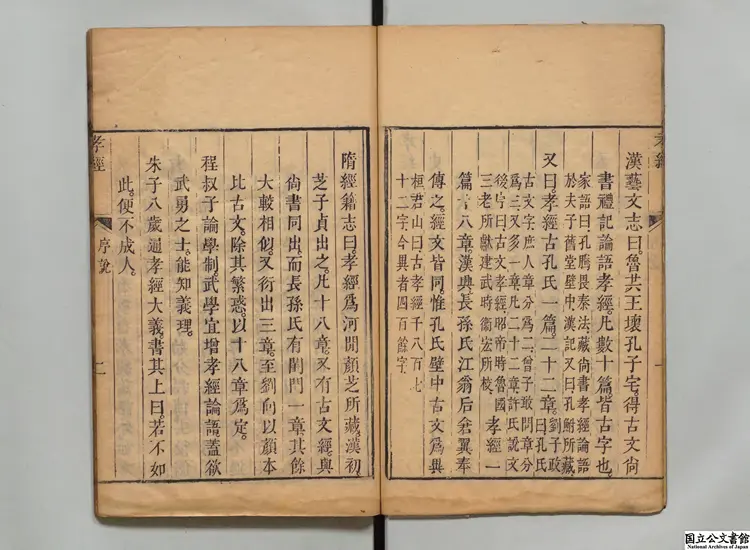 孝經
漢藝文志曰魯共王壞孔子宅得古文尚
書禮記論語孝經凡數十篇皆古字也
家語曰孔騰畏秦法藏尚書孝經論語
於夫子舊堂壁中漢記又曰孔鮒所藏
又曰孝經古孔氏一篇二十二章劉子政曰孔氏
古文字庶人章分爲二曾子敢問章分
爲三又多一章凡二十二章許氏說文
後序曰古文孝經昭帝時魯國
三老所獻建武時衞宏所校孝經一
篇十八章漢興長孫氏江翁后蒼翼奉
傳之經文皆同惟孔氏壁中古文爲異
桓君山曰古孝經千八百七
十二字今異者四百餘字
隋經籍志曰孝經爲河間顏芝所藏漢初
芝子貞出之凡十八章又有古文經與
尚書同出而長孫氏有閨門一章其餘
大較相似又衍出三章至劉向以顏本
比古文除其繁惑以十八章爲定
程叔子論學制武學宜增孝經論語蓋欲
武勇之士能知義理
朱子八歲通孝經大義書其上曰若不如
此便不成人
孝經
序說
二
国立公文書館
National Archives of Japan